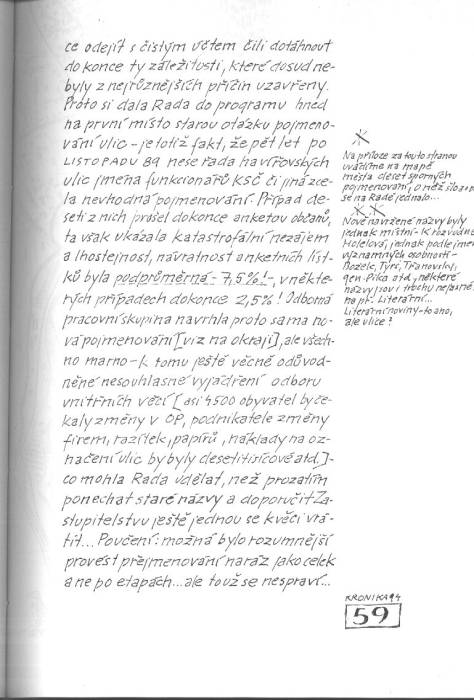 ce odejít s čistým účtem čili dotáhnout
do konce ty záležitosti, které dosud ne-
byly z nejrůznějších příčin uzavřeny.
Proto si dala Rada do programu hned
na první místo starou otázku pojmeno-
vání ulic - je totiž fakt, že pět let po
LISTOPADU 89 nese řada havířovských
ulic jména funkcionářů KSČ či jiná zce-
la nevhodná pojmenování. Případ de-
seti z nich prošel dokonce anketou občanů,
ta však ukázala katastrofální nezájem
a lhostejnost, návratnost anketních líst-
ků byla podprůměrná - 7,5%! -, v někte-
rých případech dokonce 2,5%! Odborná
pracovní skupina navrhla proto sama no-
vá pojmenování [viz na okraji], ale všech-
no marno - k tomu ještě věcně odůvod-
něné nesouhlasné vyjádření odboru
vnitřních věcí [asi 4500 obyvatel by če-
kaly změny v OP, podnikatele změny
firem, razítek, papírů, náklady na oz-
načení ulic by byly desetitisícové atd.]-
co mohla Rada udělat, než prozatím
ponechat staré názvy a doporučit Za-
stupitelstvu ještě jednou se k věci vrá-
tit... Poučení: možná bylo rozumnější
provést přejmenování naráz jako celek
a ne po etapách... ale to už se nespraví...
Na příloze za touto stranou
uvádíme na mapě
města deset sporných
pojmenování, o něž šlo a
se na Radě jednalo...
Nově navržené názvy byly
jednak místní - K rozvodně
Hotelová, jednak podle jmen
významných osobností -
Božek, Tyrš, Třanovský,
gen. Píka atd., některé
názvy jsou i trochu nejasné,
na př. Literární...
Literární noviny - to ano,
ale ulice?
KRONIKA 94
59